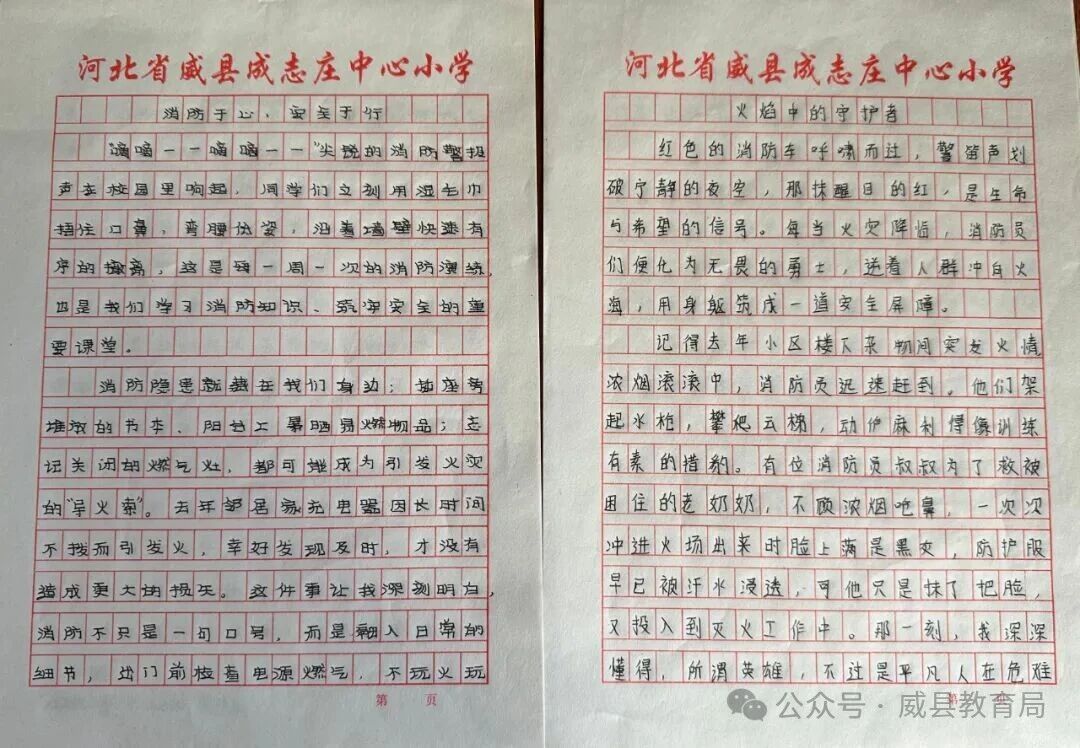 河北省威县成志庄中心小学
消防于心、安全于行
“嘀嘀——嘀嘀——”尖锐的消防警报
声在校园里响起，同学们立刻用湿毛巾
捂住口鼻，弯腰低姿，沿着墙壁快速有
序的撤离，这是每一周一次的消防演练，
也是我们学习消防知识、筑牢安全的重
要课堂。
消防隐患就藏在我们身边；插座旁
堆放的书本、阳台上暴晒易燃物品；忘
记关闭的燃气灶，都可能成为引发火灾
的“导火索”。去年邻居家充电器因长时间
不拔而引发火，幸好发现及时，才没有
造成更大的损失。这件事让我深刻明白，
消防不只是一句口号，而是融入日常的
细节，出门前检查电源燃气，不玩火玩
第 页
河北省威县成志庄中心小学
火焰中的守护者
红色的消防车呼啸而过，警笛声划
破宁静的夜空，那抹醒目的红，是生命
与希望的信号。每当火灾降临，消防员
们便化为无畏的勇士，逆着人群冲向火
海，用身躯筑成一道安全屏障。
记得去年小区楼下杂物间突发火情，
浓烟滚滚中，消防员迅速赶到。他们架
起水枪，攀爬云梯，动作麻利得像训练
有素的猎豹。有位消防员叔叔为了救被
困住的老奶奶，不顾浓烟呛鼻，一次次
冲进火场出来时脸上满是黑灰，防护服
早已被汗水浸透，可他只是抹了把脸，
又投入到灭火工作中。那一刻，我深深
懂得，所谓英雄，不过是平凡人在危难
第 页
公众号·威县教育局